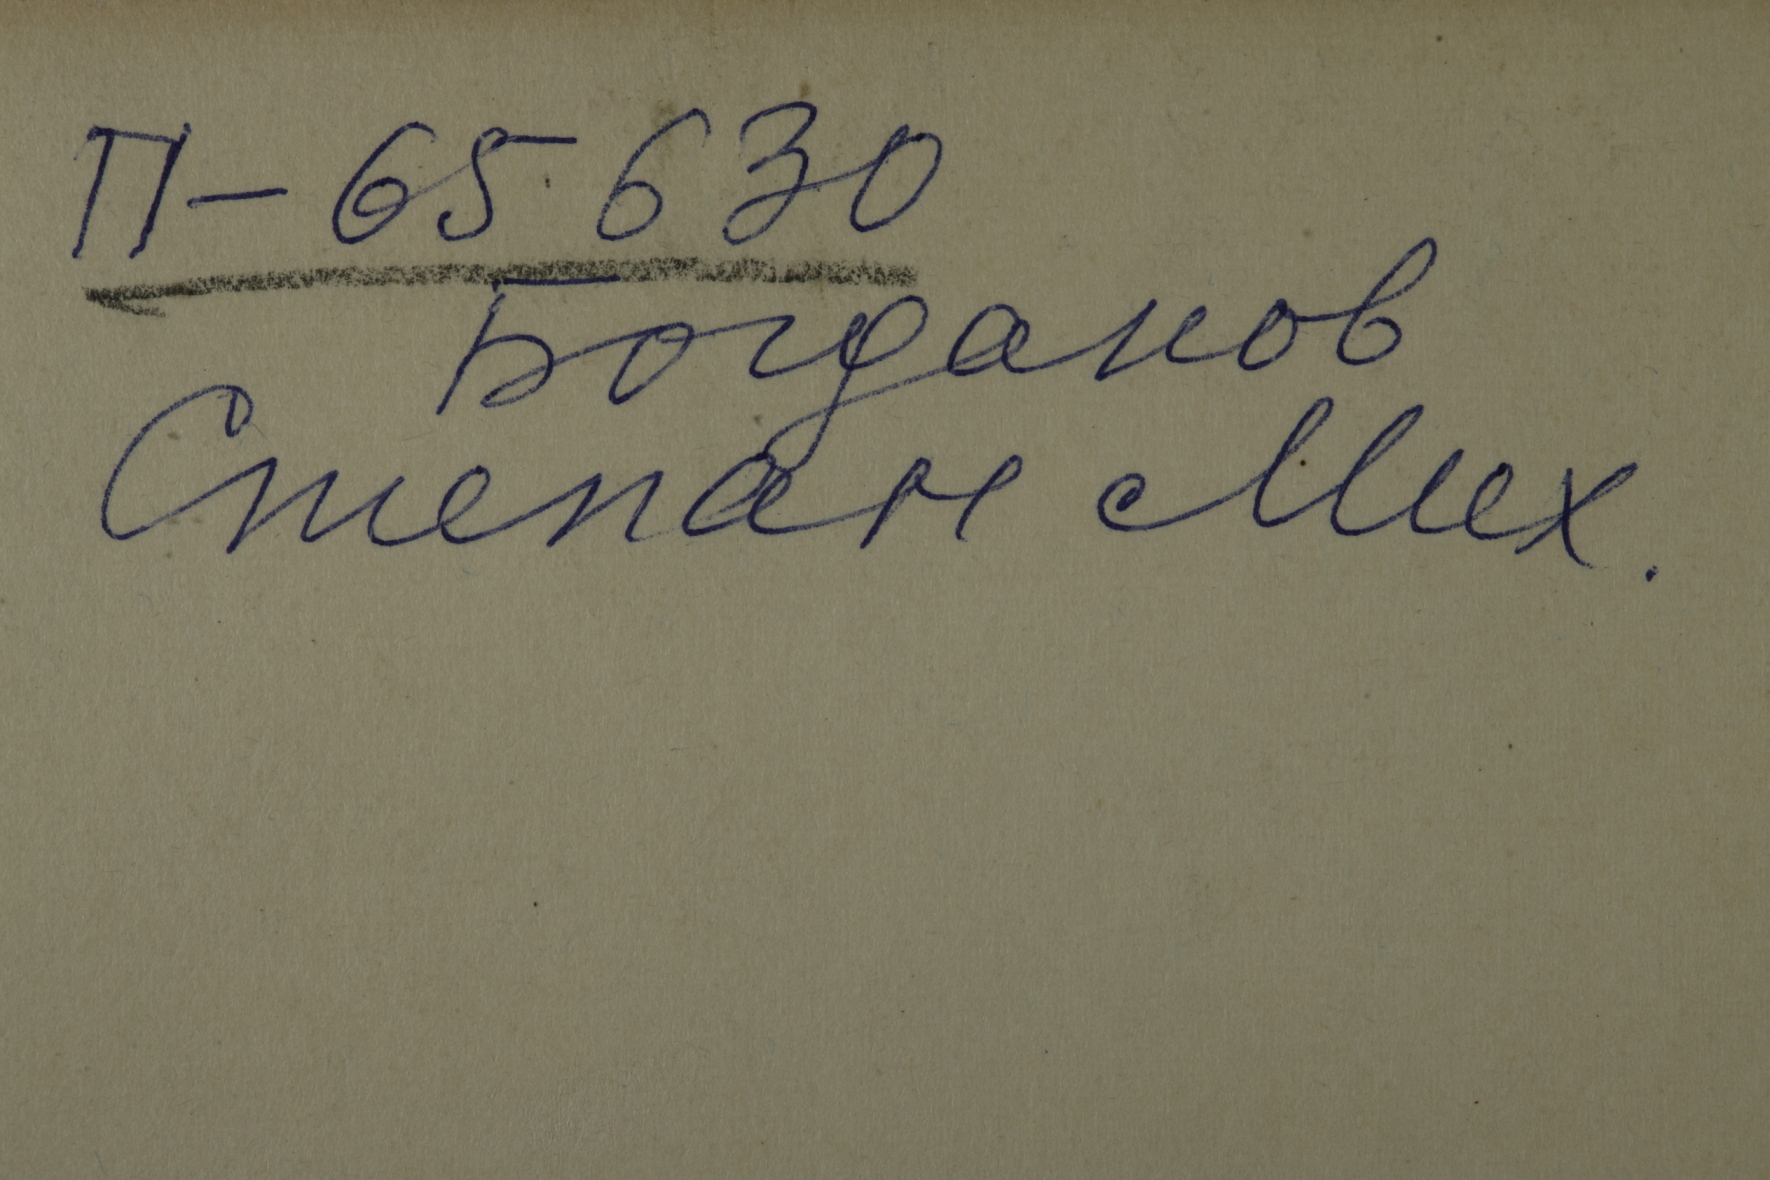 П-65630
Богданов
Степан Мих.